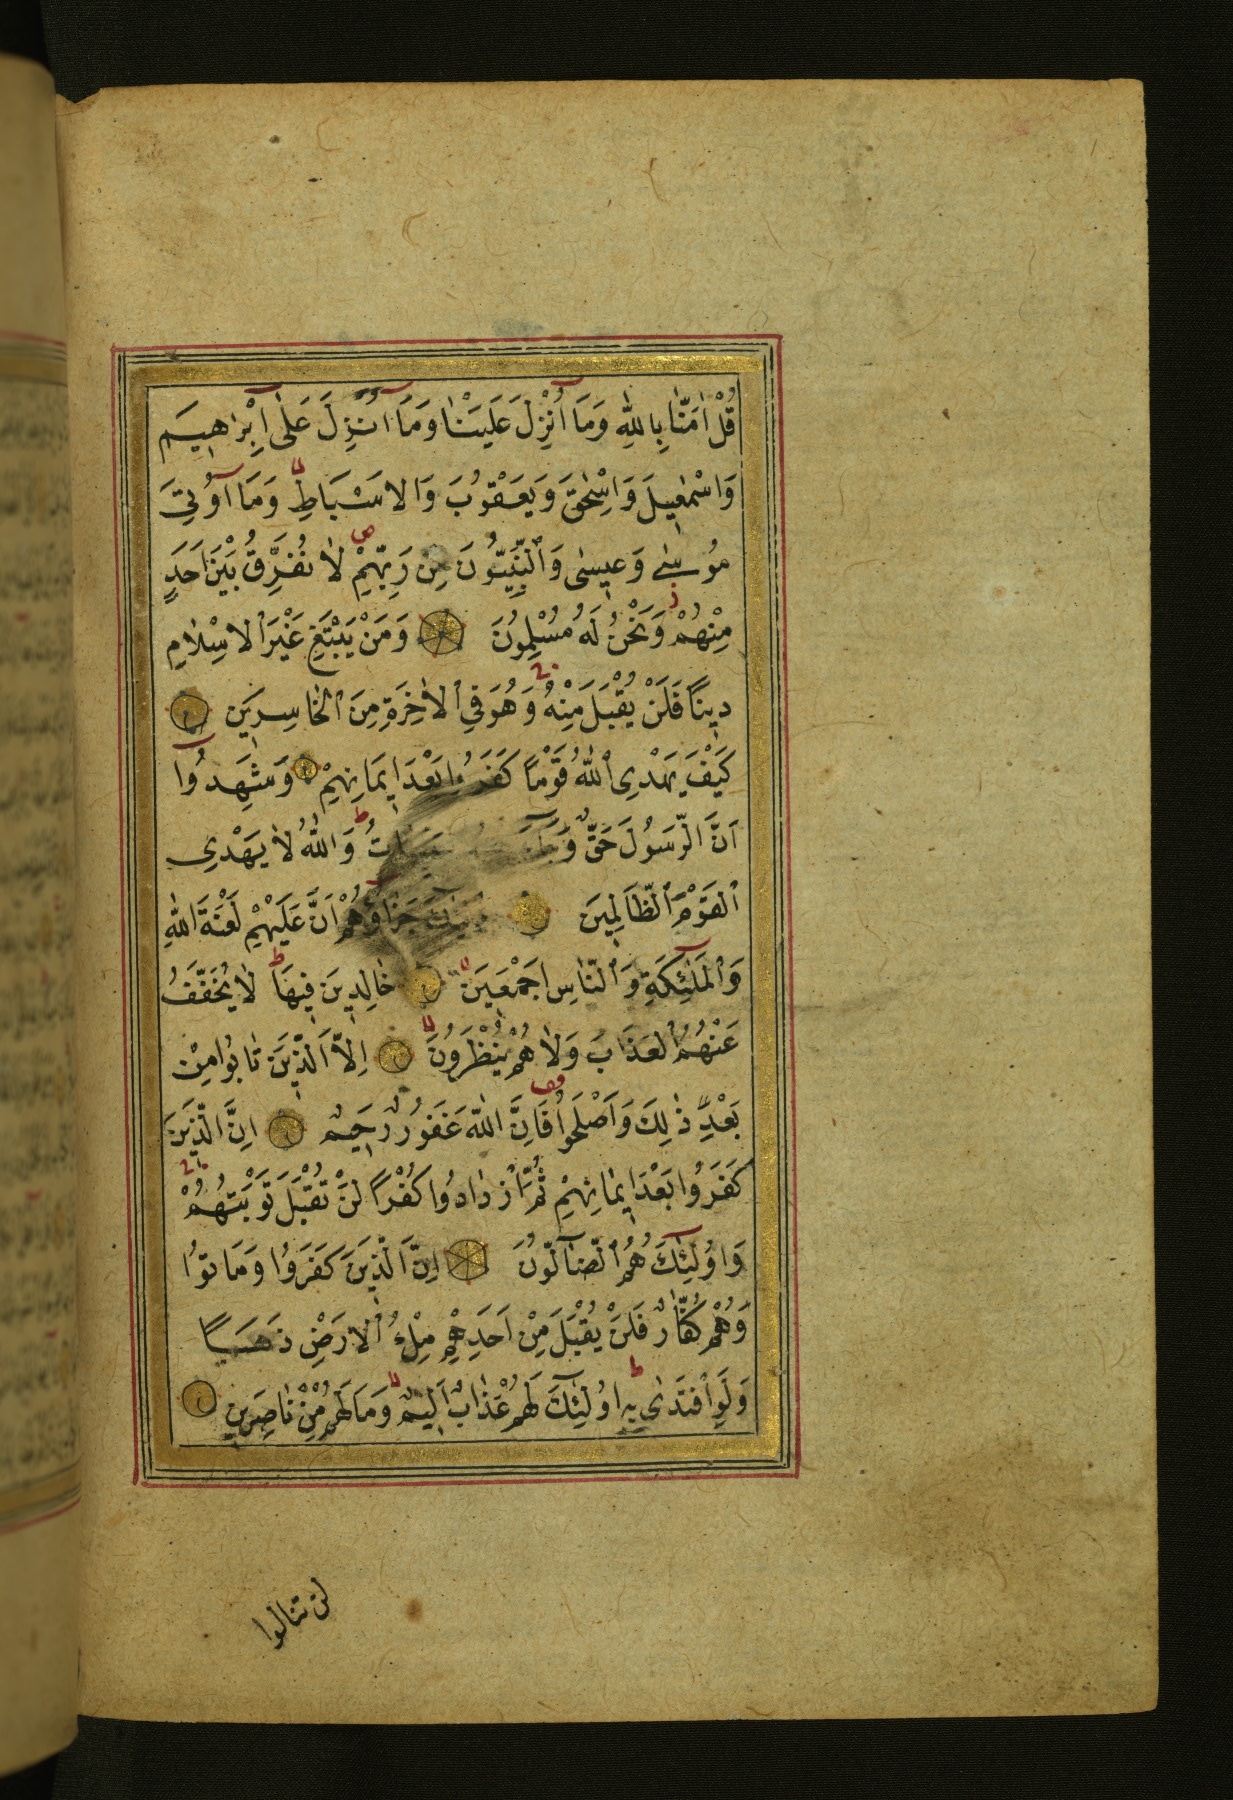 قُلْ اٰمَنَّا بِاللّٰهِ وَمَا اُنْزِلَ عَلَيْنَا وَمَا اُنْزِلَ عَلٰى اِبْرٰاهِيمَ
وَاِسْمٰعِيلَ وَاِسْحٰقَ وَيَعْقُوبَ وَالْاَسْبَاطِ وَمَا اُوتِىَ
مُوسٰى وَعِيسٰى وَالنَّبِيُّونَ مِنْ رَبِّهِمْ لَا نُفَرِّقُ بَيْنَ اَحَدٍ
مِنْهُمْ وَنَحْنُ لَهُ مُسْلِمُونَ وَمَنْ يَبْتَغِ غَيْرَ الْاِسْلَامِ
دِينًا فَلَنْ يُقْبَلَ مِنْهُ وَهُوَ فِى الْاٰخِرَةِ مِنَ الْخَاسِرِينَ
كَيْفَ يَهْدِى اللّٰهُ قَوْمًا كَفَرُوا بَعْدَ اِيمَانِهِمْ وَشَهِدُوا
اَنَّ الرَّسُولَ حَقٌّ وَاللّٰهُ لَا يَهْدِى
الْقَوْمَ الظَّالِمِينَ جَزَاؤُهُمْ اَنَّ عَلَيْهِمْ لَعْنَةَ اللّٰهِ
وَالْمَلٰئِكَةِ وَالنَّاسِ اَجْمَعِينَ خَالِدِينَ فِيهَا لَا يُخَفَّفُ
عَنْهُمُ الْعَذَابُ وَلَا هُمْ يُنْظَرُونَ اِلَّا الَّذِينَ تَابُوا مِنْ
بَعْدِ ذٰلِكَ وَاَصْلَحُوا فَاِنَّ اللّٰهَ غَفُورٌ رَحِيمٌ اِنَّ الَّذِينَ
كَفَرُوا بَعْدَ اِيمَانِهِمْ ثُمَّ ازْدَادُوا كُفْرًا لَنْ تُقْبَلَ تَوْبَتُهُمْ
وَاُولٰئِكَ هُمُ الضَّالُّونَ اِنَّ الَّذِينَ كَفَرُوا وَمَاتُوا
وَهُمْ كُفَّارٌ فَلَنْ يُقْبَلَ مِنْ اَحَدِهِمْ مِلْءُ الْاَرْضِ ذَهَبًا
وَلَوِ افْتَدٰى بِهِ اُولٰئِكَ لَهُمْ عَذَابٌ اَلِيمٌ وَمَا لَهُمْ مِنْ نَاصِرِينَ
لن تنالوا